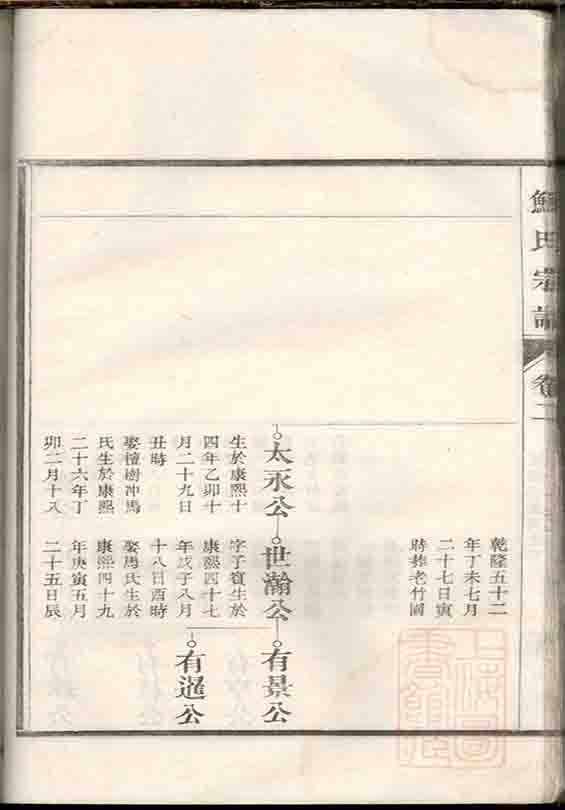 氏宗譜
卷二
乾隆五十二
年丁未七月
二十七日寅
時葬老竹園
太永公
世瀚公
有景公
有暹公
生於康熙十
四年乙卯十
月二十九日
丑時
娶檀樹冲馬
氏生於康熙
二十六年丁
卯二月十八
字子賓生於
康熙四十七
年戊子八月
十八日酉時
娶馬氏生於
康熙四十九
年庚寅五月
二十五日辰
上海圖
書館藏